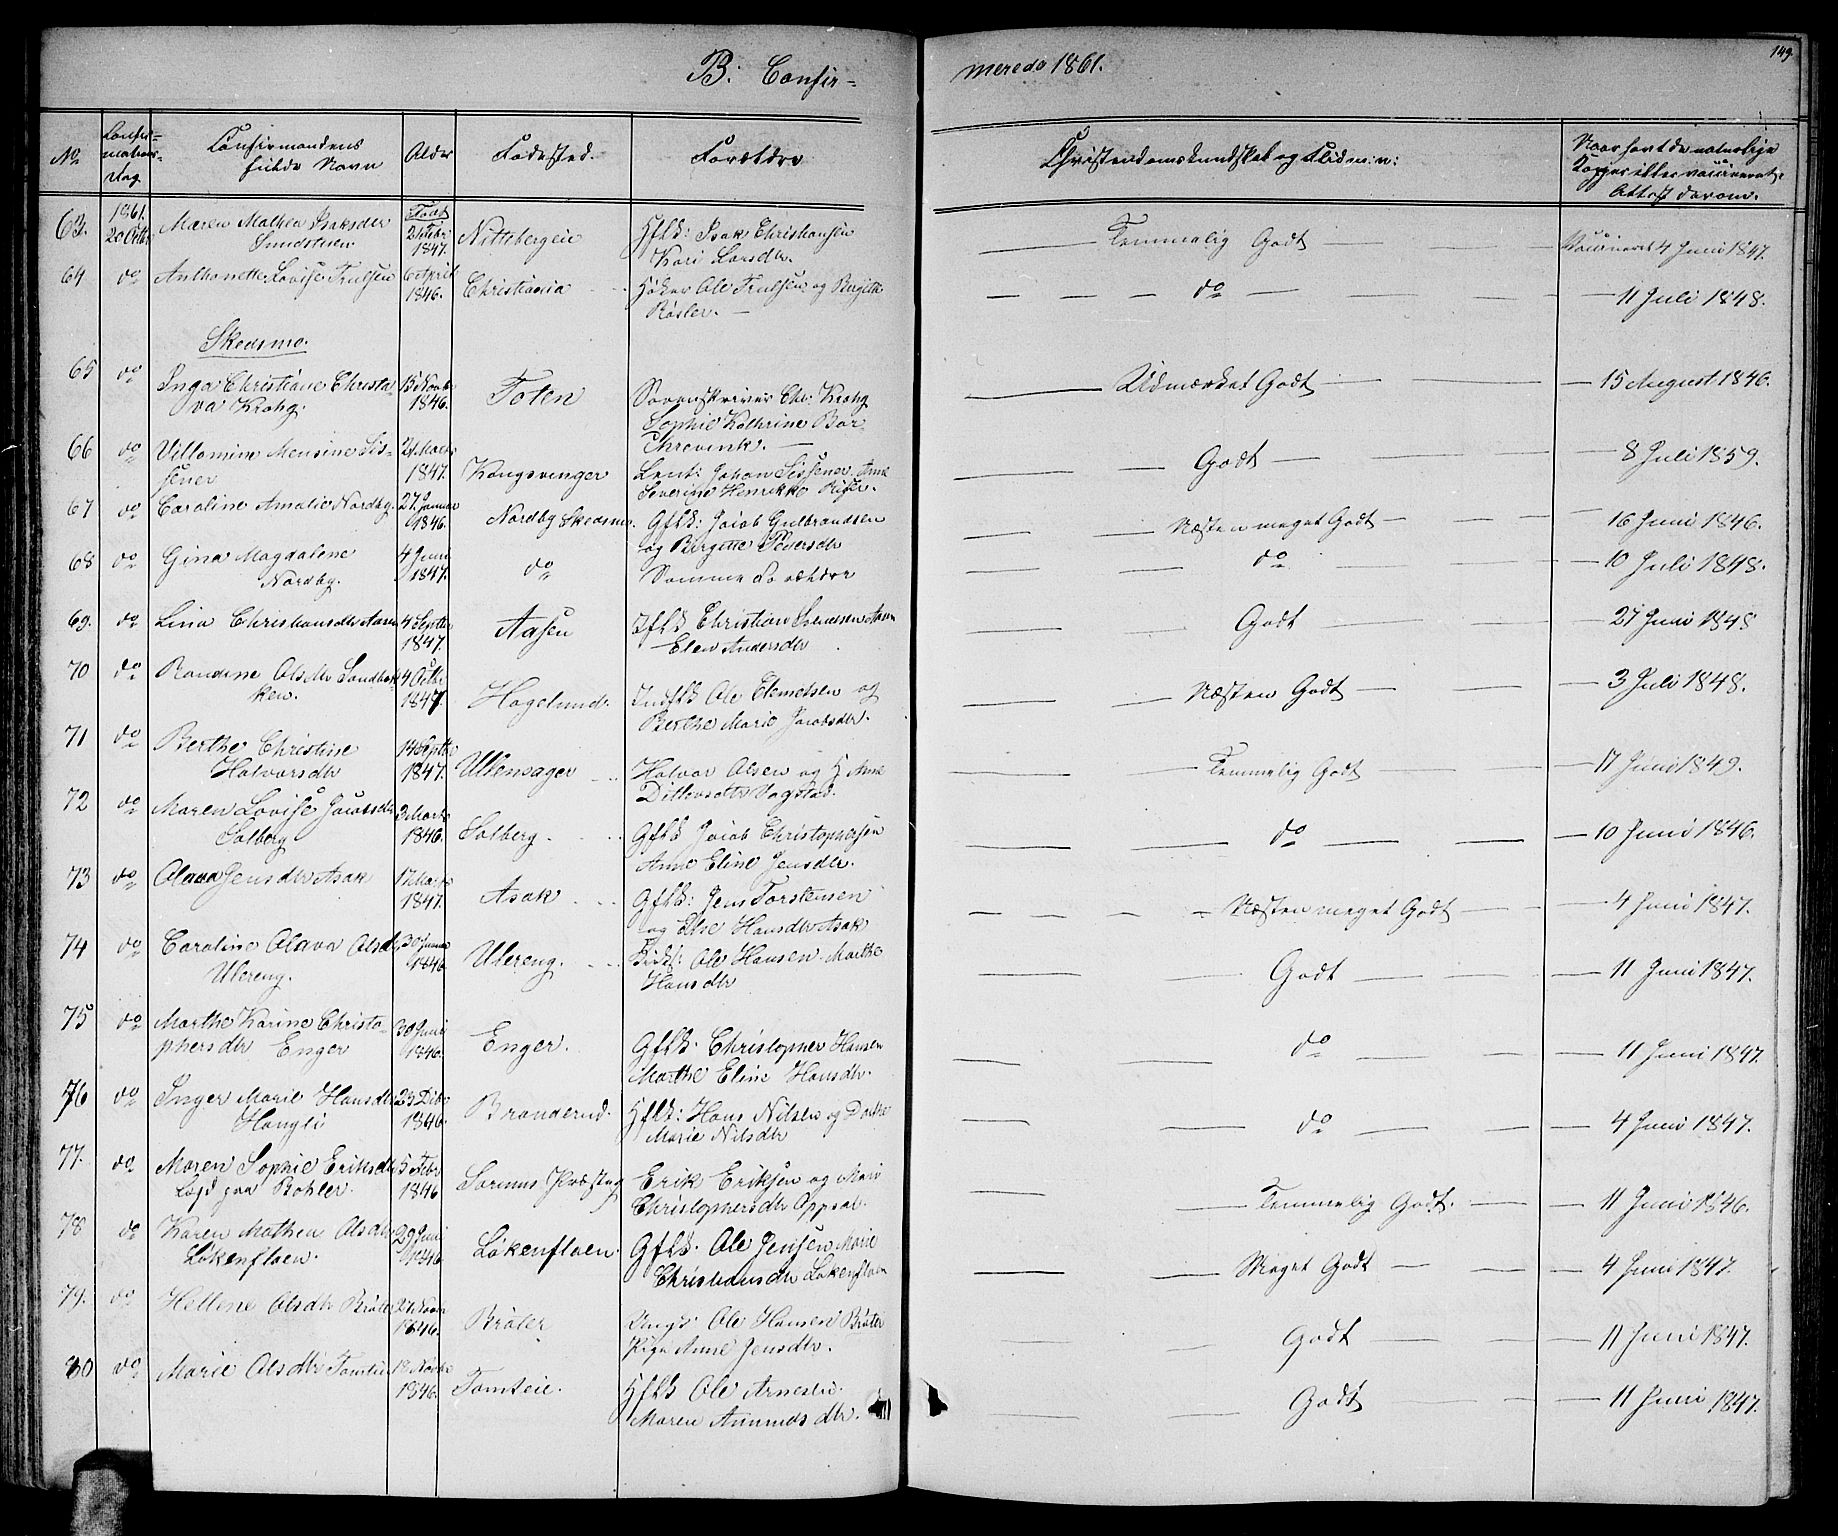 B. Confir-
merede 1861.
149
No
Confir-
mations-
dag.
Confirmandens
fulde Navn
Alder
Fødested.
Forældre
Christendomskundskab og Flid m. v:
Naar havt de naturlige
Kopper eller vaccineret.
Attest derom.
63. 1861. 20 Octbr Maren Mathea Isaksdtr Født 2 Febr 1847. Nittebergeie Hfkb: Isak Christiansen
Kari Larsdtr.
Temmelig Godt Vaccineret 4 Juni 1847.
64 do Anthonette Lovise Trulsen 6 April 1846. Christiania Høker Ole Trulsen og Birgitte
Røsler.
do 11 Juli 1848.
Skedsmo.
65 do Inga Christiane Christa-
va Krohg. 13 Novbr 1846. Toten Sorenskriver Chr. Krohg
Sophie Kathrine Bar-
Udmærket Godt 15 August 1846.
66 do Villamine Mensine Sis-
sener 2 Marts 1847. Kongsvinger Lent: Johan Sissener Anne
Severine Henrikke Riser.
Godt 8 Juli 1859.
67 do Caroline Amalie Nordby. 27 Januar 1846. Nordby Skedsmo. Gfkb: Jacob Gulbrandsen
og Birgitte Pedersdtr
Næsten meget Godt 16 Juni 1846.
68 do Gina Magdalene
Nordby. 4 Juni 1847. do Samme Forældre
do 10 Juli 1848.
69. do Lina Christiansdtr Aasen 4 Septbr 1847. Aasen Hfkb Christian Svendsen Aasen
Elen Andersdtr
Godt 27 Juni 1848
70 do Randine Olsdtr Sandbak-
ken. 4 Octbr 1847. Hagelund. Indfkb Ole Clemetsen og
Berthe Marie Jacobsdtr.
Næsten Godt 3 Juli 1848.
71 do Berthe Christine
Halvorsdtr 14 Septbr 1847. Ullensager Halvor Olsen og H Anne
Ditlevsdtr Vogstad.
Temmelig Godt 17 Juni 1849.
72 do Maren Lovise Jacobsdtr
Solberg 3 Marts 1846. Solberg. Gfkb Jacob Christophersen
Anne Eline Jensdtr.
do 10 Juni 1846.
73 do Olava Jensdtr Asak 17 Marts 1847. Asak Gfkb: Jens Torstensen
og Else Hansdtr Asak
Næsten meget Godt 4 Juni 1847.
74 do Caroline Olava Olsdtr
Ulereng. 30 Januar 1846 Ulereng. Ole Hansen. Marthe
Hansdtr
Godt 11 Juni 1847.
75 do Marthe Karine Christo-
phersdtr Enger 30 Juni 1846. Enger. Gfkb. Christopher Hansen
Marthe Eline Hansdtr.
do 11 Juni 1847.
76 do Inger Marie Hansdtr
Haugli 23 Dcbr 1846. Branderud. Hfkb: Hans Nilsen og Dorthe
Marie Nilsdtr
do 4 Juni 1847.
77. do Maren Sophie Eriksdtr
Lægd paa Bøhler. 5 Febr 1846 Sørums Præstegj Erik Eriksen og Mari
Christophersdtr Oppsal.
Temmelig Godt. 11 Juni 1846.
78 do Karen Mathea Olsdtr
Løkenflaen. 29 Juni 1846 Løkenflaen. Gfkb. Ole Jensen Marie
Christiansdtr Løkenflaen
Meget Godt 4 Juni 1847.
79. do Hellene Olsdtr Bråter 27 Novbr 1846. Bråter Ungk: Ole Hansen Bråter
Pige Anne Jensdtr.
Godt 11 Juni 1847.
80 do Marie Olsdtr Tomteie 18 Novbr 1846. Tomteie. Hfkb Ole Arnesen.
Maren Amundsdtr.
Godt 11 Juni 1847.